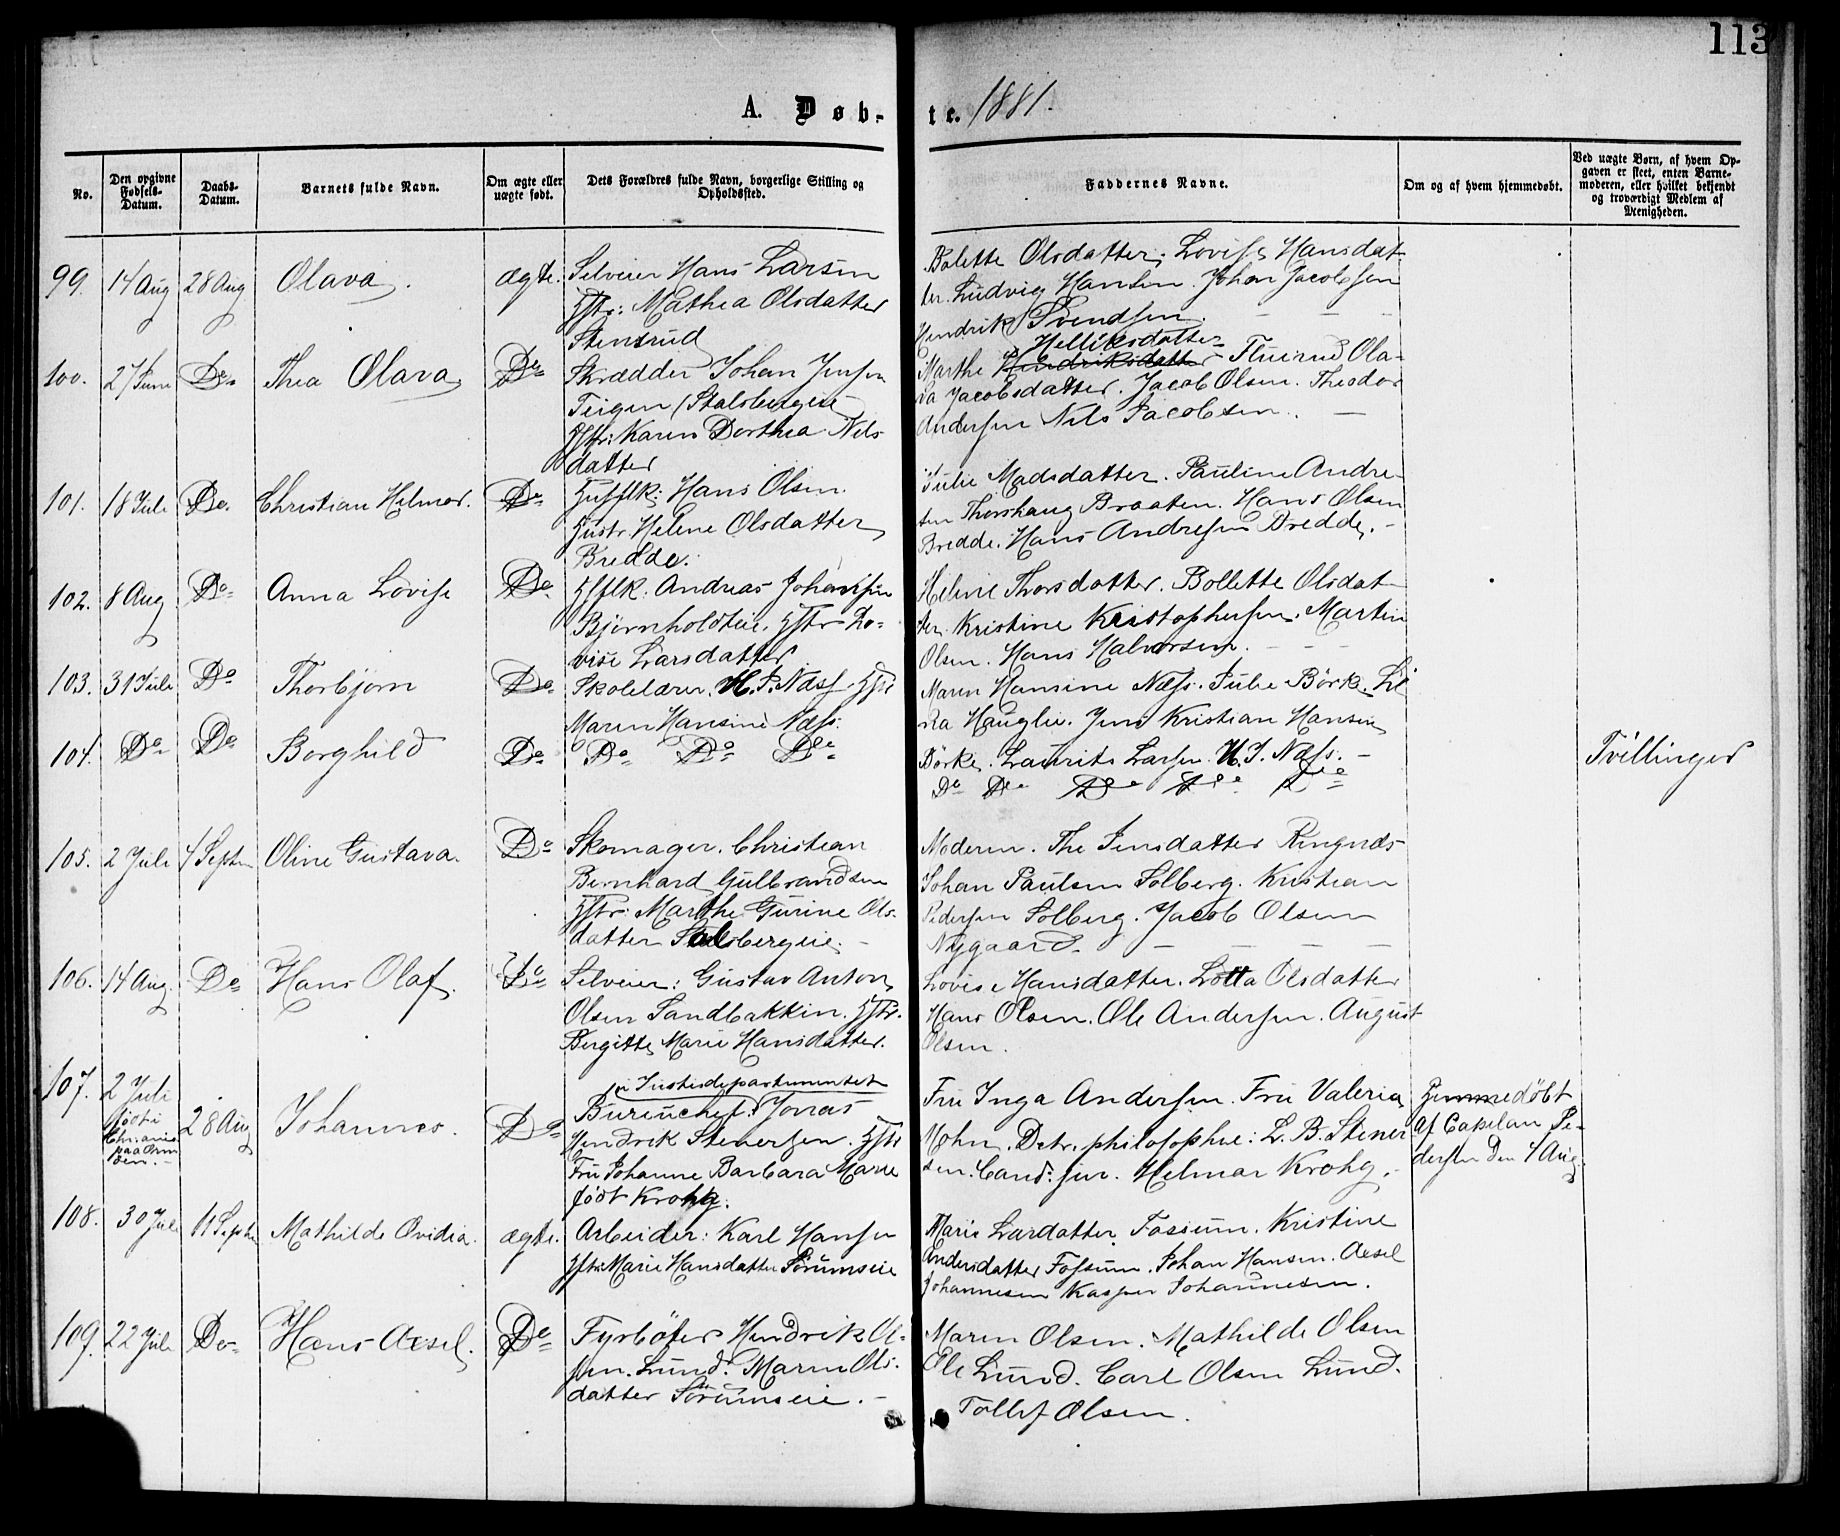 113
A. Døb-
te. 1881.
No.
Den opgivne Fødsels-Datum.
Daabs-Datum.
Barnets fulde Navn.
Om ægte eller uægte født.
Dets Forældres fulde Navn, borgerlige Stilling og Opholdssted.
Faddernes Navne.
Om og af hvem hjemmedøbt.
Ved uægte Børn, af hvem Op-
gaven er skeet, enten Barne-
moderen, eller hvilket bekjendt
og troværdigt Medlem af
Menigheden.
99. 14 Aug 28 Aug Olava. ægte.
Selveier Hans Larsen
Hstr: Mathea Olsdatter
Stensrud
Bolette Olsdatter. Lovise Hansdat
ter. Ludvig Hansen. Johan Jacobsen
Hendrik Svendsen.
100. 27 Juni Do Thea Olava Do
Skrædder Johan Jensen
Teigen (Stalsbergeie
Hstr: Karen Dorthea Nils
datter
Helliksdatter
Marthe Hendriksdatter Fluirud Ola-
va Jacobsdatter. Jacob Olsen. Theodor
Andersen Nils Jacobsen.
101. 18 Juli Do. Christian Hilmar. Do
Husflk: Hans Olsen.
Hustr. Helene Olsdatter
Bredde.
Julie Madsdatter. Pauline Andre-
sen Thorshaug Braaten. Hans Olsen
Bredde. Hans Andresen Bredde.
102. 8 Aug Do Anna Lovise Do.
Hsflk. Andreas Johansen
Bjørnholdteie. Hstr Lo-
vise Larsdatter
Helene Thorsdatter. Bollette Olsdat
ter. Kristine Kristophersen. Martin
Olsen. Hans Halvorsen.
103. 31 Juli Do Thorbjørn Do
Skolelærer. H. J. Næss Hstr
Maren Hansine Næss.
Maren Hansine Næss. Julie Börke. Li
na Hauglie. Jens Kristian Hansen
Börke. Laurits Larsen. H. J. Næss.
104. Do Do Borghild Do
Do Do Do
Do Do Do Do Do
Tvillinger
105. 2 Juli 4 Septr Oline Gustava. Do
Skomager. Christian
Bernhard Gulbrandsen
Hstr: Marthe Gurine Ols-
datter Stalsbergeie.
Moderen. The Jensdatter Ringnæs
Johan Paulsen Solberg. Kristian
Pedersen Solberg. Jacob Olsen
Nygaard.
106. 14 Aug. Do Hans Olaf. Do
Selveier: Gustav Anton
Olsen Sandbakken. Hstr.
Bergitte Marie Hansdatter.
Lovise Hansdatter. Lotta Olsdatter
Hans Olsen. Ole Andersen. August
Olsen.
107. 2 Juli
født i
Christiania
28 Aug Johannes. Do
i Justisdepartementet
Bureuchef: Jonas
Hendrik Stenersen. Hstr
Fru Johanne Barbara Marie
født Krohg.
Fru Inga Andersen. Fru Valeria
Mohn. Dctr. philosophie: L. B. Stener
sen. Cand. jur. Helmar Krohg.
Hjemmedöbt
af Capelan Pe-
dersen den 4 Aug.
108. 30 Juli 11 Septr Mathilde Ovidia. ægte.
Arbeider: Karl Hansen
Hstr: Marie Hansdatter Sörumseie
Marie Larsdatter Fossum. Kristine
Andersdatter Fossum. Johan Hansen. Axel
Johannesen Kasper Johannesen.
109. 22 Juli Do Hans Axel. Do
Fyrböter Hendrik Ol-
sen. Lund. Maren Ols-
datter Sörumseie.
Maren Olsen. Mathilde Olsen
Ole Lund. Carl Olsen Lund.
Tollef Olsen.